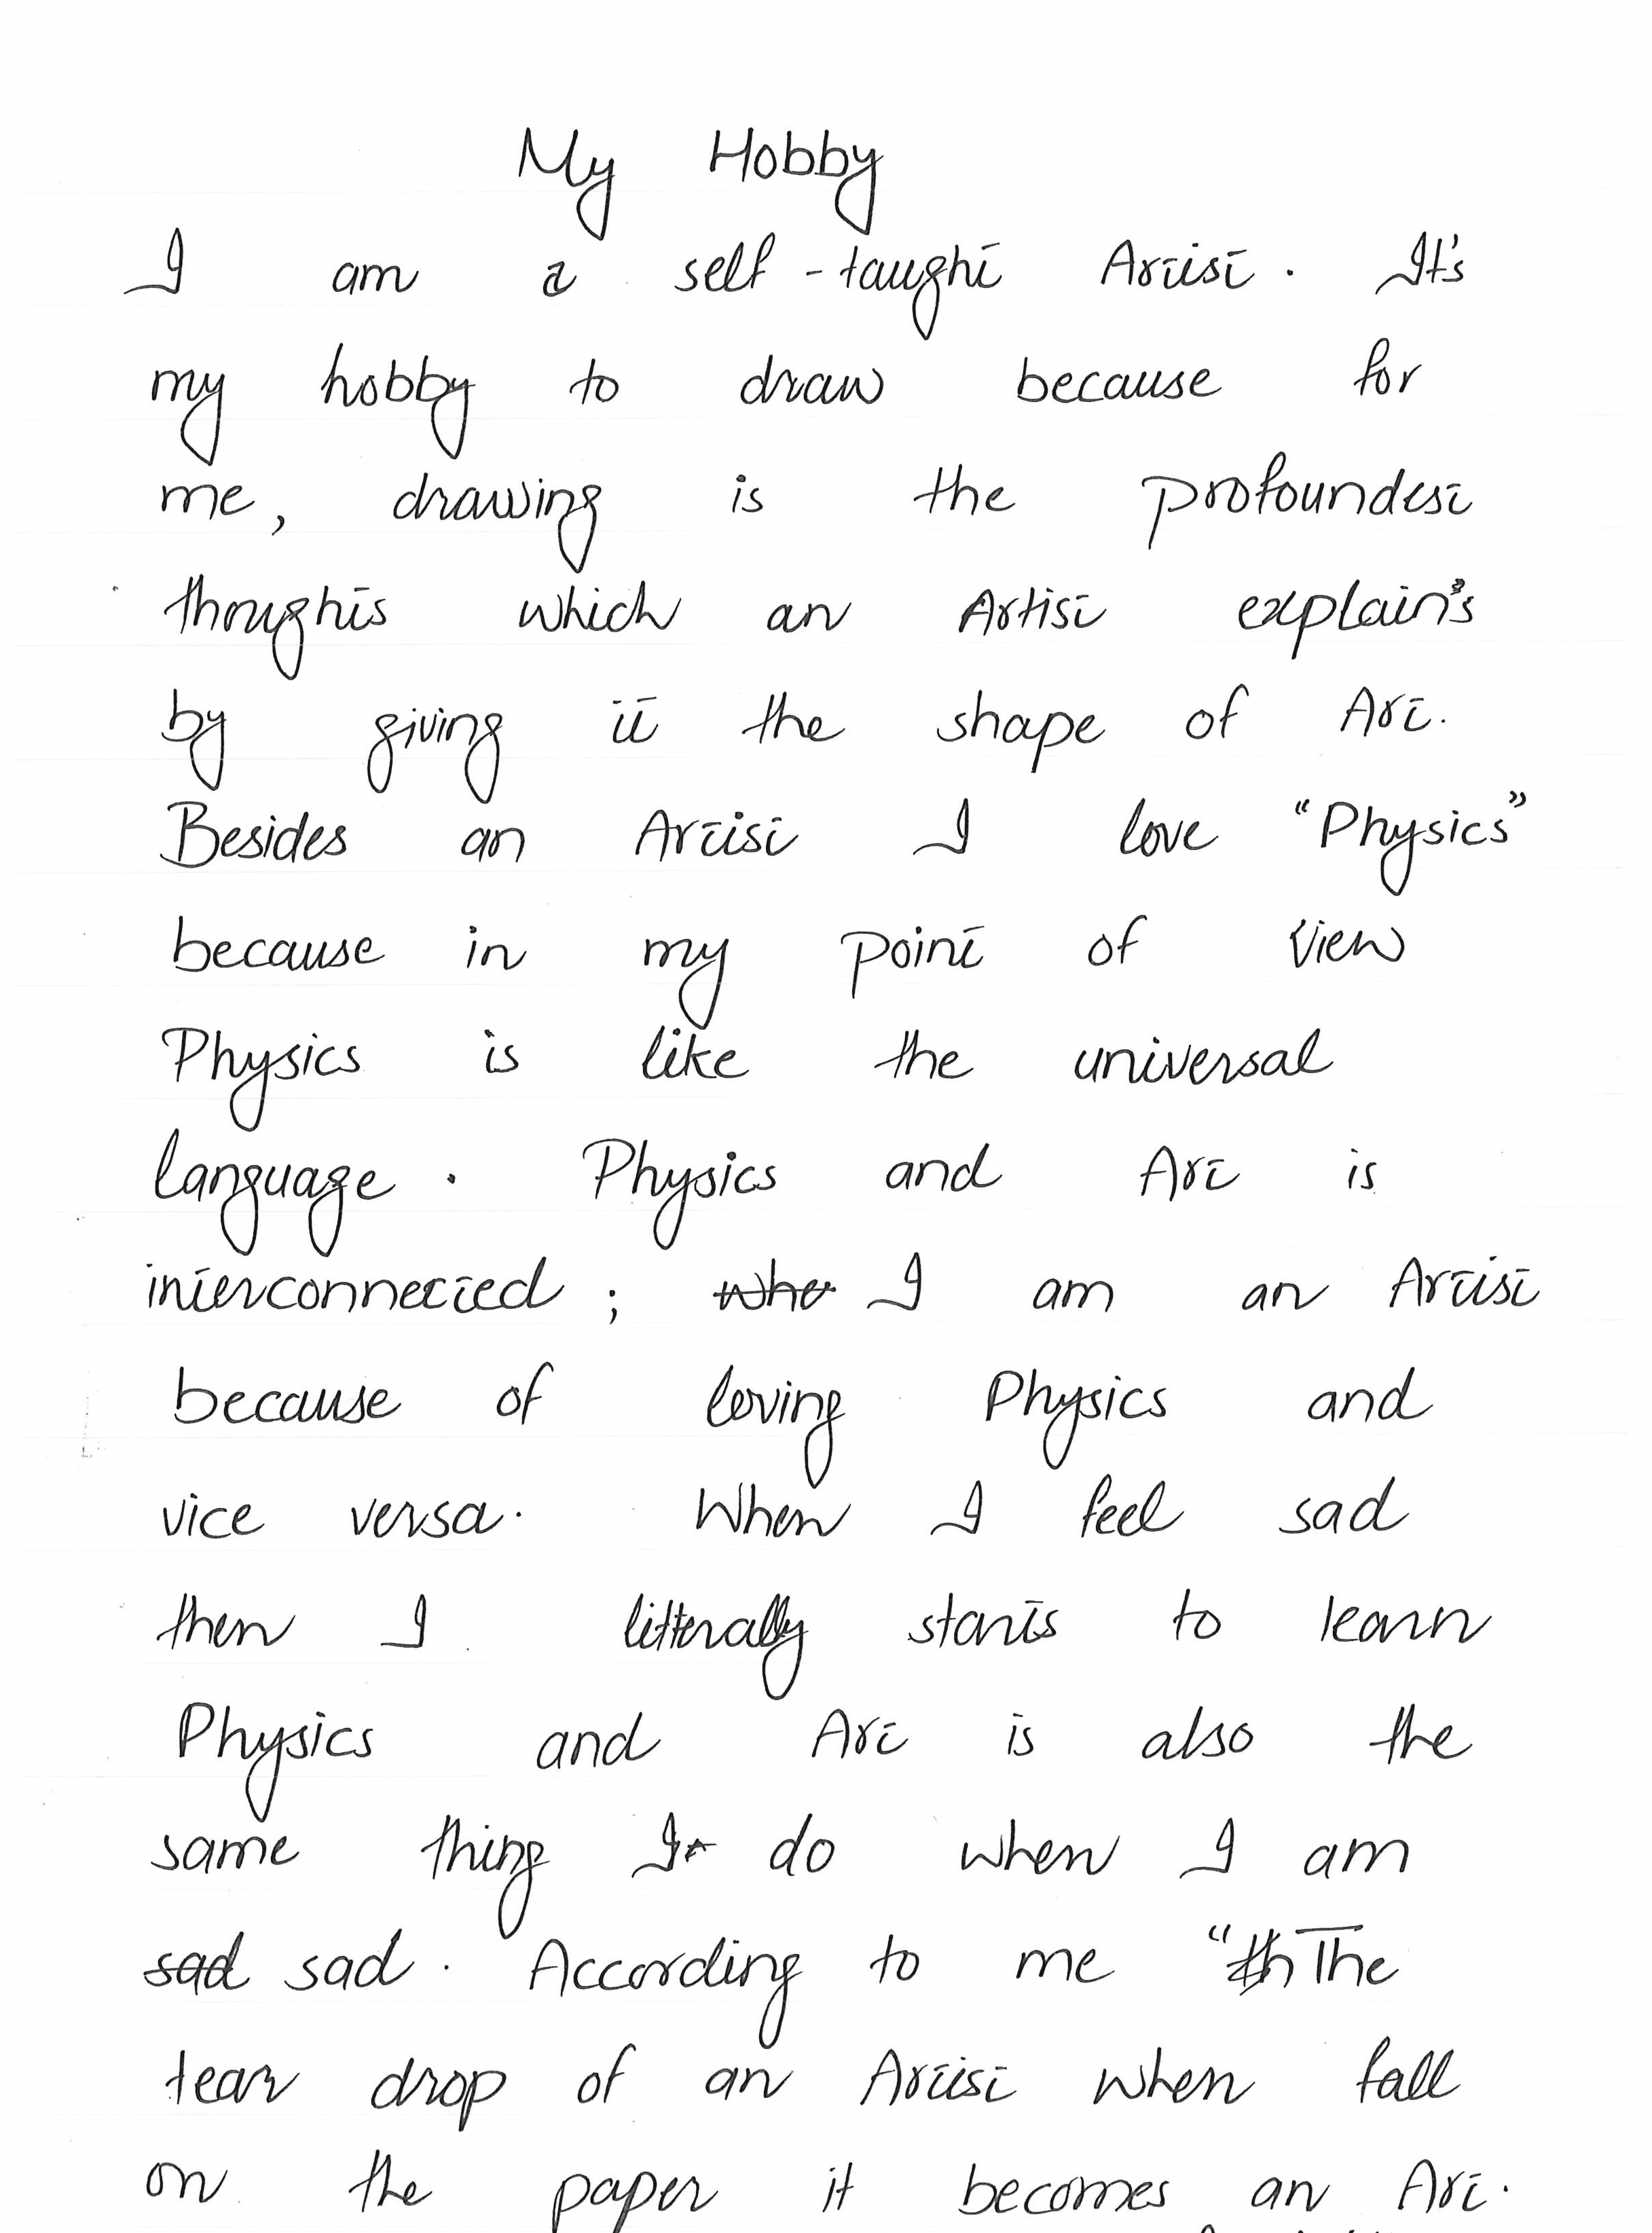 My Hobby
I am a self-taught Artist. It's
my hobby to draw because for
me, drawing is the profoundest
thoughts which an Artist explain's
by giving it the shape of Art.
Besides an Artist I love "Physics"
because in my point of view
Physics is like the universal
language. Physics and Art is
interconnected; who I am an Artist
because of loving Physics and
vice versa. When I feel sad
then I litterally starts to learn
Physics and Art is also the
same thing I do when I am
sad sad. According to me "th The
tear drop of an Artist when fall
on the paper it becomes an Art.